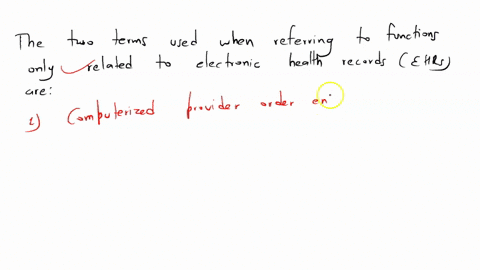 The two terms used when referring to functions
only related to electronic health records (EHRs)
are:
1) Computerized provider order en